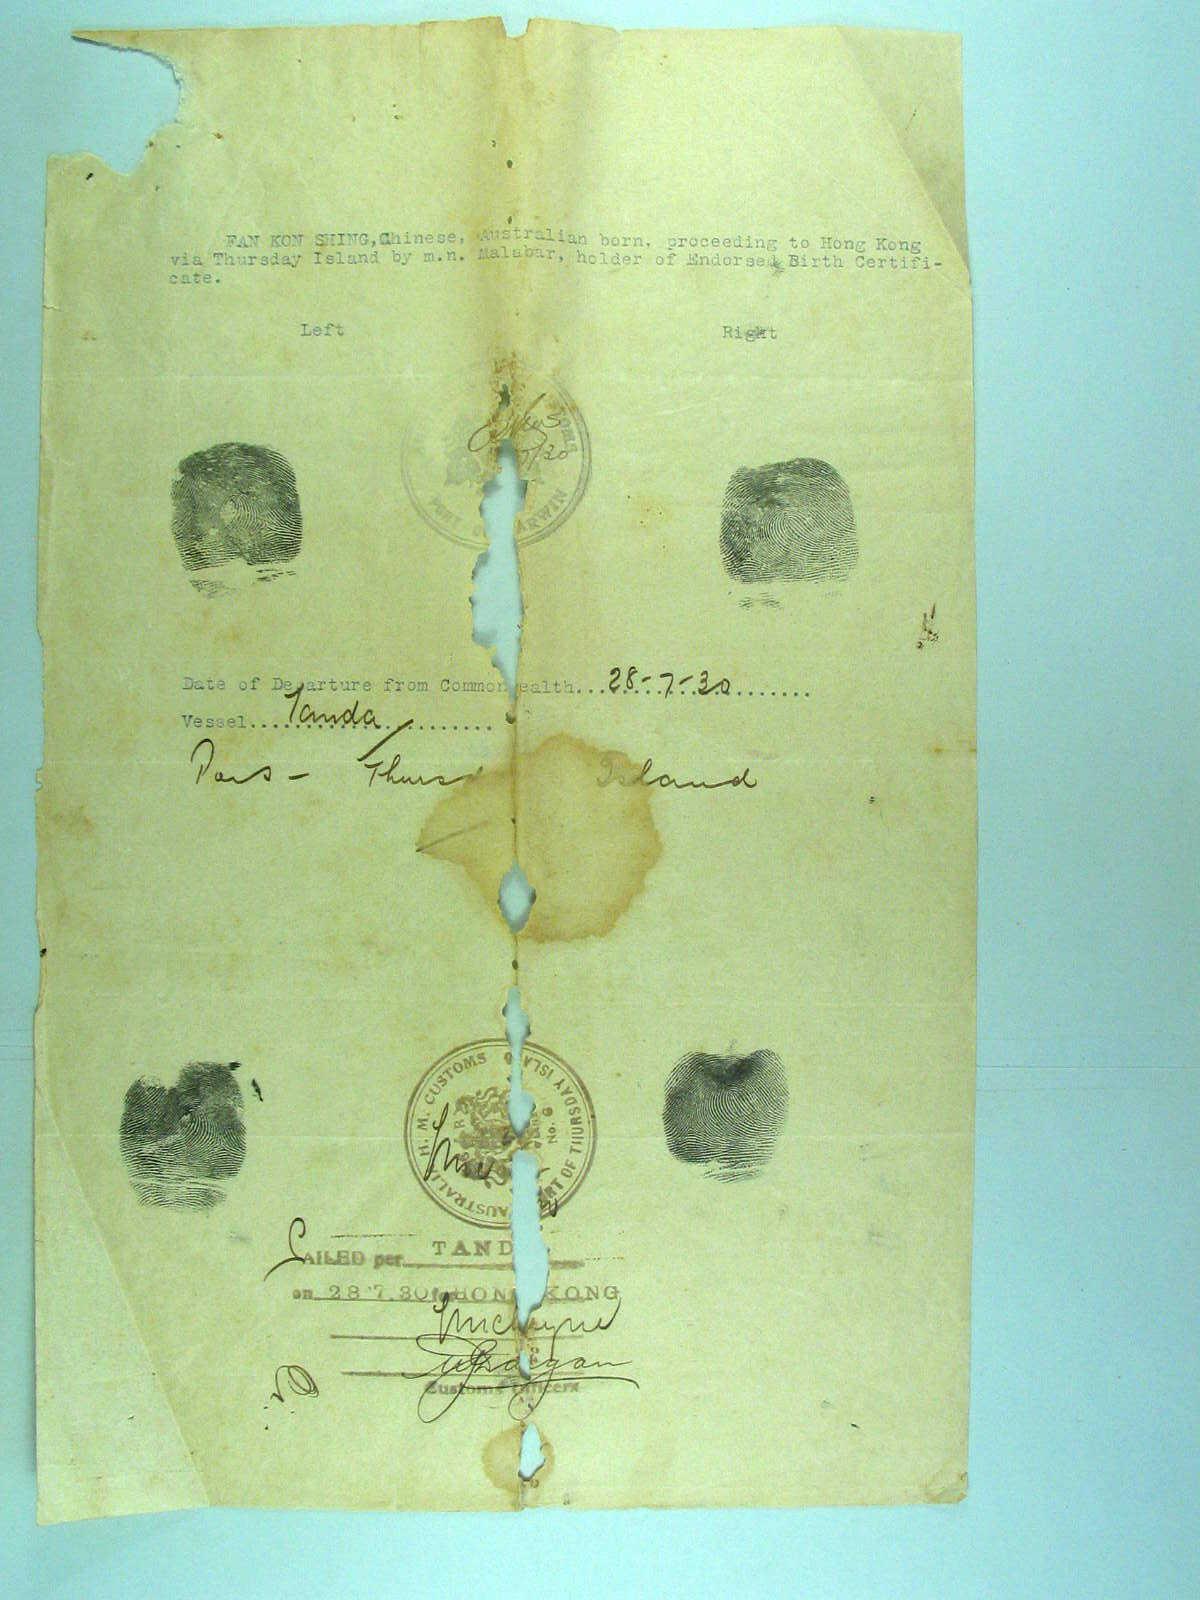 FAN KON SHING, Chinese, Australian born, proceeding to Hong Kong
via Thursday Island by m.n. Malabar, holder of Endorsed Birth Certifi-
cate.
Left Right
PORT ARWIN
/30
Date of De arture from Common ealth... 28-7-30 .......
Vessel.... Tanda ..........
Pors - Thurs Island
H. M. CUSTOMS
AUSTRALIA
RT OF THURSDAY ISLA
No. 6
SAILED per TAND
on 28 7.30 for HON KONG
Customs Officers